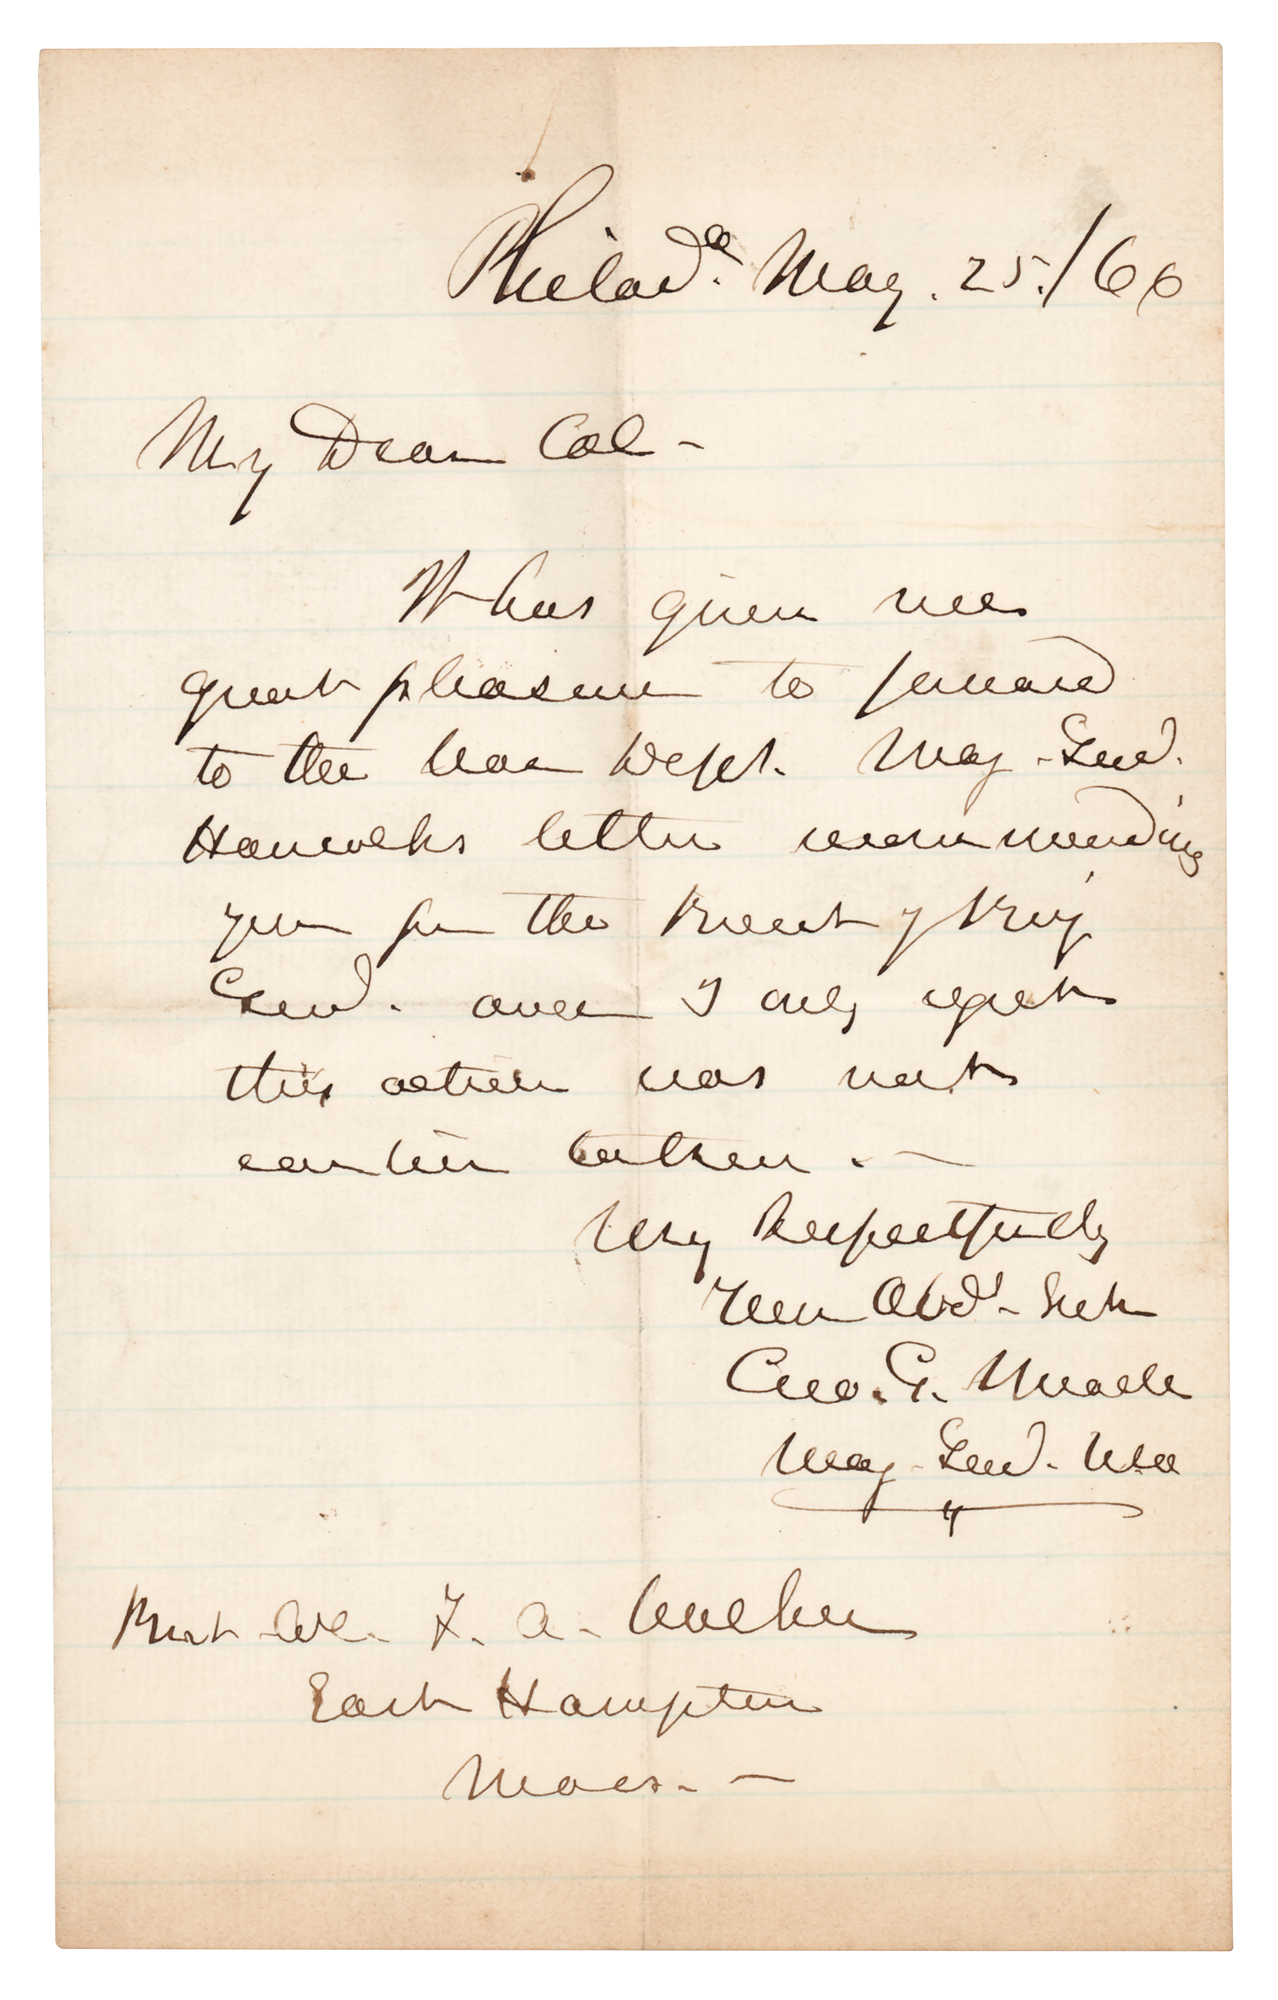 Philad.a May. 25./66
My Dear Col -
It has given me
great pleasure to forward
to the War Dept. Maj - Genl.
Hancocks letter recommending
you for the Brevet of Brig
Genl. and I only regret
this action was not
earlier taken. —
Very Respectfully
Your Obdt - Svt
Geo. G. Meade
Maj - Genl. USA
"
Brvt - Col. F. A. Walker
East Hampton
Mass. —